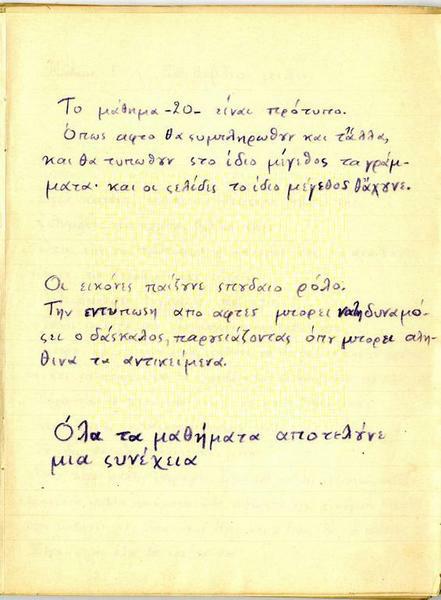 Το μάθημα -20- είναι πρότυπο.
Όπως αφτο θα συμπληρωθυν και τἄλλα,
και θα τυπωθυν ςτο ίδιο μέγεθος τα γράμ-
ματα· και οι ςελίδες το ίδιο μέγεθος θἄχυνε.
Οι εικόνες παίζυνε ςπυδαίο ρόλο.
Την εντύπωςη απο αφτες μπορει να τη δυναμό-
ςει ο δάςκαλος, παρυςιάζοντας όπυ μπορει αλη-
θινα τα αντικείμενα.
Όλα τα μαθήματα αποτελύνε
μια ςυνέχεια